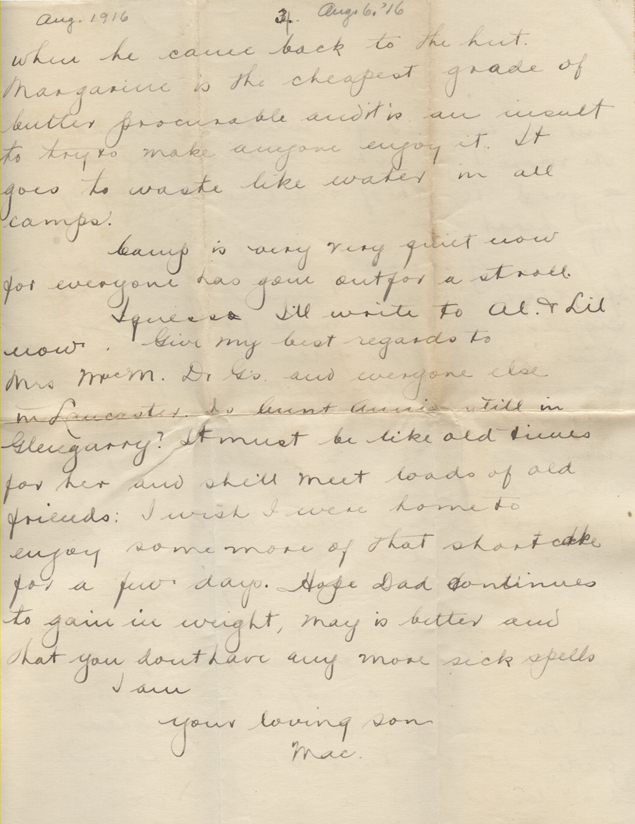 Aug. 1916 3. Aug 6, '16
when he came back to the hut.
Margarine is the cheapest grade of
butter procurable and it is an insult
to try to make anyone enjoy it. It
goes to waste like water in all
camps.
Camp is very very quiet now
for everyone has gone out for a stroll.
I guess I'll write to Al. & Lil
now. Give my best regards to
Mrs MacM. Dr G's. and everyone else
in Lancaster. Is Aunt Annie still in
Glengarry? It must be like old times
for her and she'll meet loads of old
friends: I wish I were home to
enjoy some more of that shortcake
for a few days. Hope Dad continues
to gain in weight, May is better and
that you dont have any more sick spells
I am
your loving son
Mac.